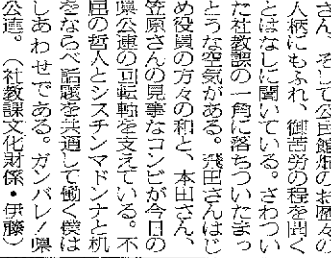 さん、そして公民館那のお歴々の
人柄にもふれ、御苦労の程を聞く
とはなしに聞いている。さわつい
た社教課の一角に落ちついたまっ
とうな空気がある。飛田さんはじ
め役員の方々の和と、本田さん、
笠原さんの見事なコンビが今日の
県公連の回転軸を支えている。不
屈の哲人とシスチンマドンナと机
をならべ話題を共通して働く僕は
しあわせである。ガンバレ！県
公連。（社教課文化財係・伊藤）